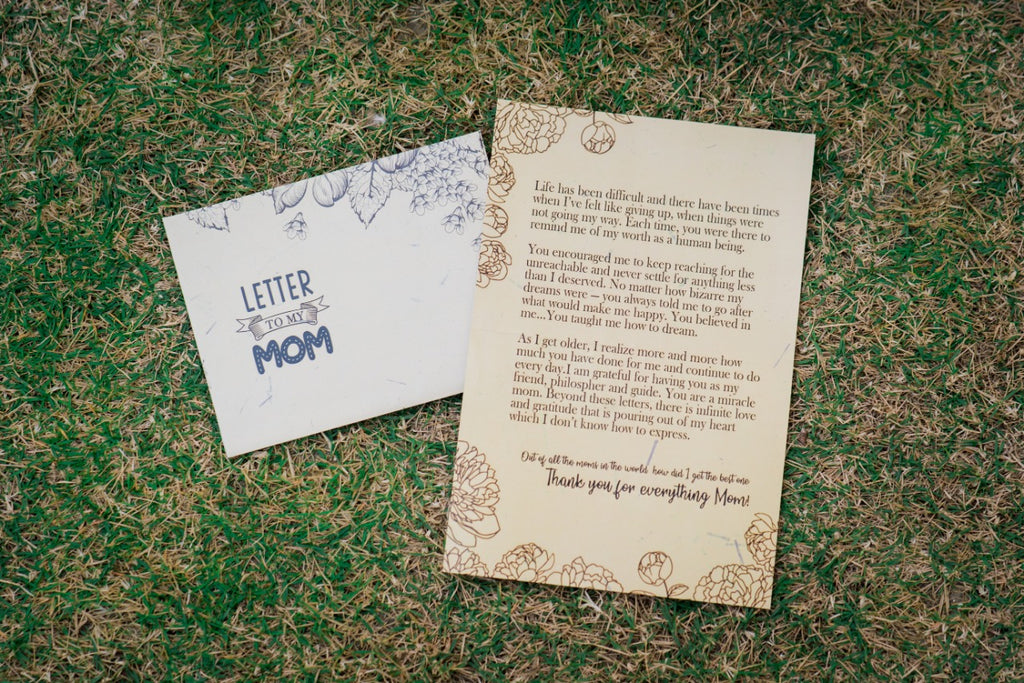 LETTER
TO MY
MOM
Life has been difficult and there have been times
when I've felt like giving up, when things were
not going my way. Each time, you were there to
remind me of my worth as a human being.
You encouraged me to keep reaching for the
unreachable and never settle for anything less
than I deserved. No matter how bizarre my
dreams were – you always told me to go after
what would make me happy. You believed in
me...You taught me how to dream.
As I get older, I realize more and more how
much you have done for me and continue to do
every day.I am grateful for having you as my
friend, philospher and guide. You are a miracle
mom. Beyond these letters, there is infinite love
and gratitude that is pouring out of my heart
which I don't know how to express.
Out of all the moms in the world how did I get the best one
Thank you for everything Mom!